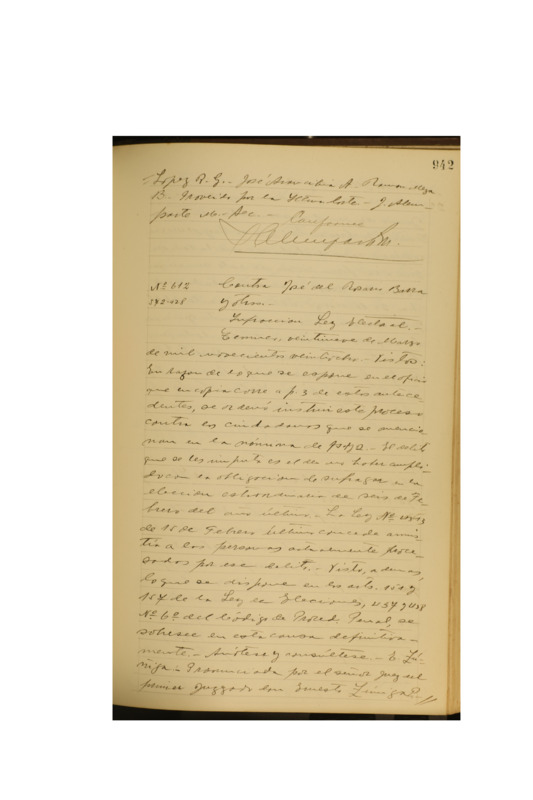 942
Lopez R. G. - José Aravabia A. - Ramon Mega
B. - Proveido por la Iltma Corte - J. Alem-
parte M. - Sec. -
Conforme
Nº 612
Contra José del Rosario Barra
y otros. -
Infraccion Ley Electoral. -
Temuco, veintinueve de Marzo
de mil novecientos veintiocho. - Vistos:
En razon de lo que se espone en el oficio
que en copia corre a f. 3 de estos antece-
dentes, se ordenó instruir este proceso
contra los ciudadanos que se mencio
nan en la nómina de
El delito
que se les imputa es el de no haber cumpli-
do con la obligacion de sufragar en la
eleccion estraordinaria de seis de Fe-
brero del año último. - La Ley Nº
de 16 de Febrero último concede amnis-
tía a las personas actualmente proce-
sadas por ese delito. - Visto, ademas,
lo que se dispone en los arts.
de la Ley de Elecciones,
Nº 6º del Código de Proced. Penal, se
sobresee en esta causa definitiva-
mente. - Anótese y consúltese. - E. Zú-
ñiga. - Pronunciada por el señor Juez del
primer Juzgado don Ernesto Zúñiga